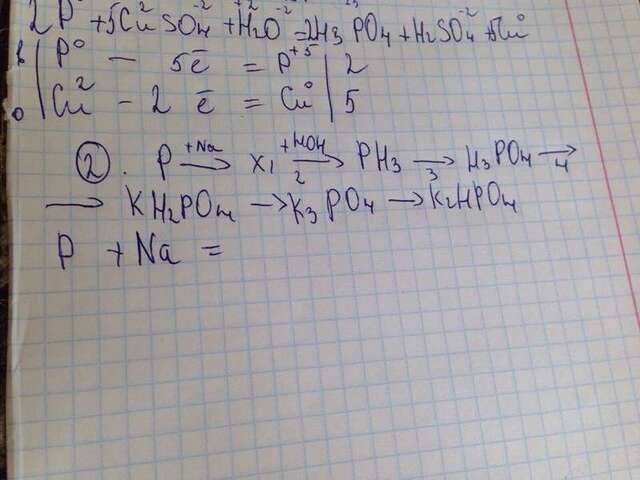 2P + 5Cu² SO₄⁻² + H₂O⁻² = 2H₃PO₄ + H₂SO₄⁻² + 5Cu⁰
в P⁰ — 5ē = P⁺⁵ | 2
о Cu² - 2 ē = Cu⁰ | 5
②. P +Na → X₁ +HOH →2 PH₃ →3 H₃PO₄ →4
→ KH₂PO₄ → K₃PO₄ → K₂HPO₄
P + Na =